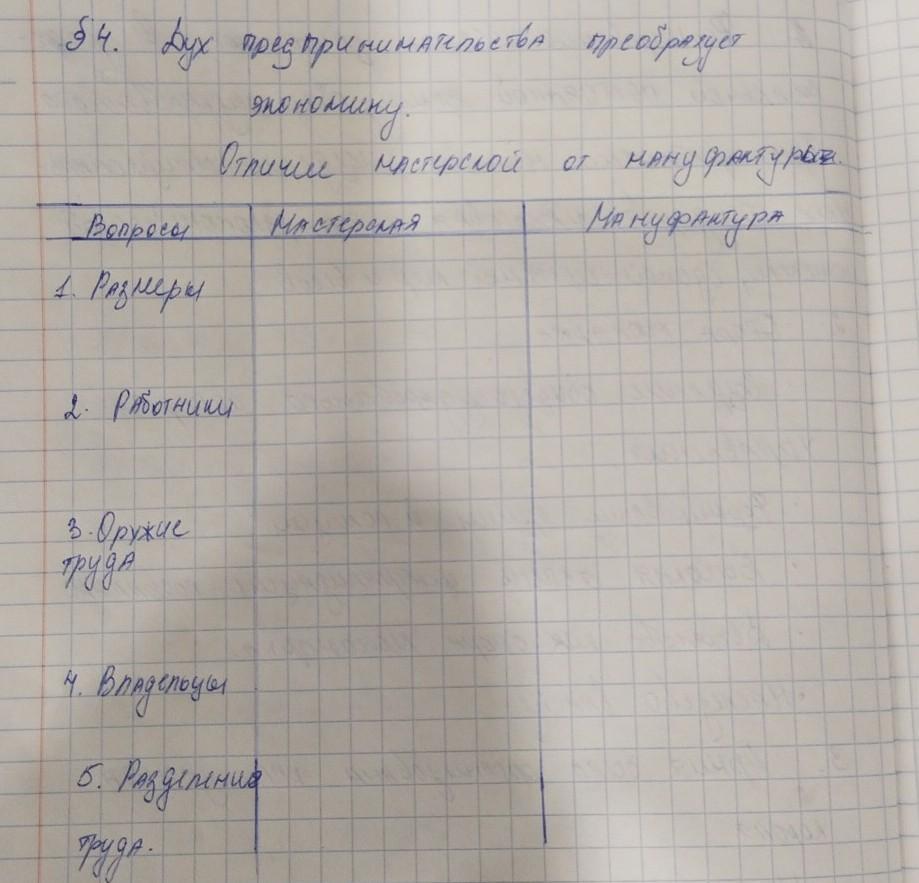 §4. Дух предпринимательства преобразует
экономику.
Отличие мастерской от мануфактуры.
Вопросы Мастерская Мануфактура
1. Размеры
2. Работники
3. Оружие
труда
4. Владельцы
5. Разделение
труда.